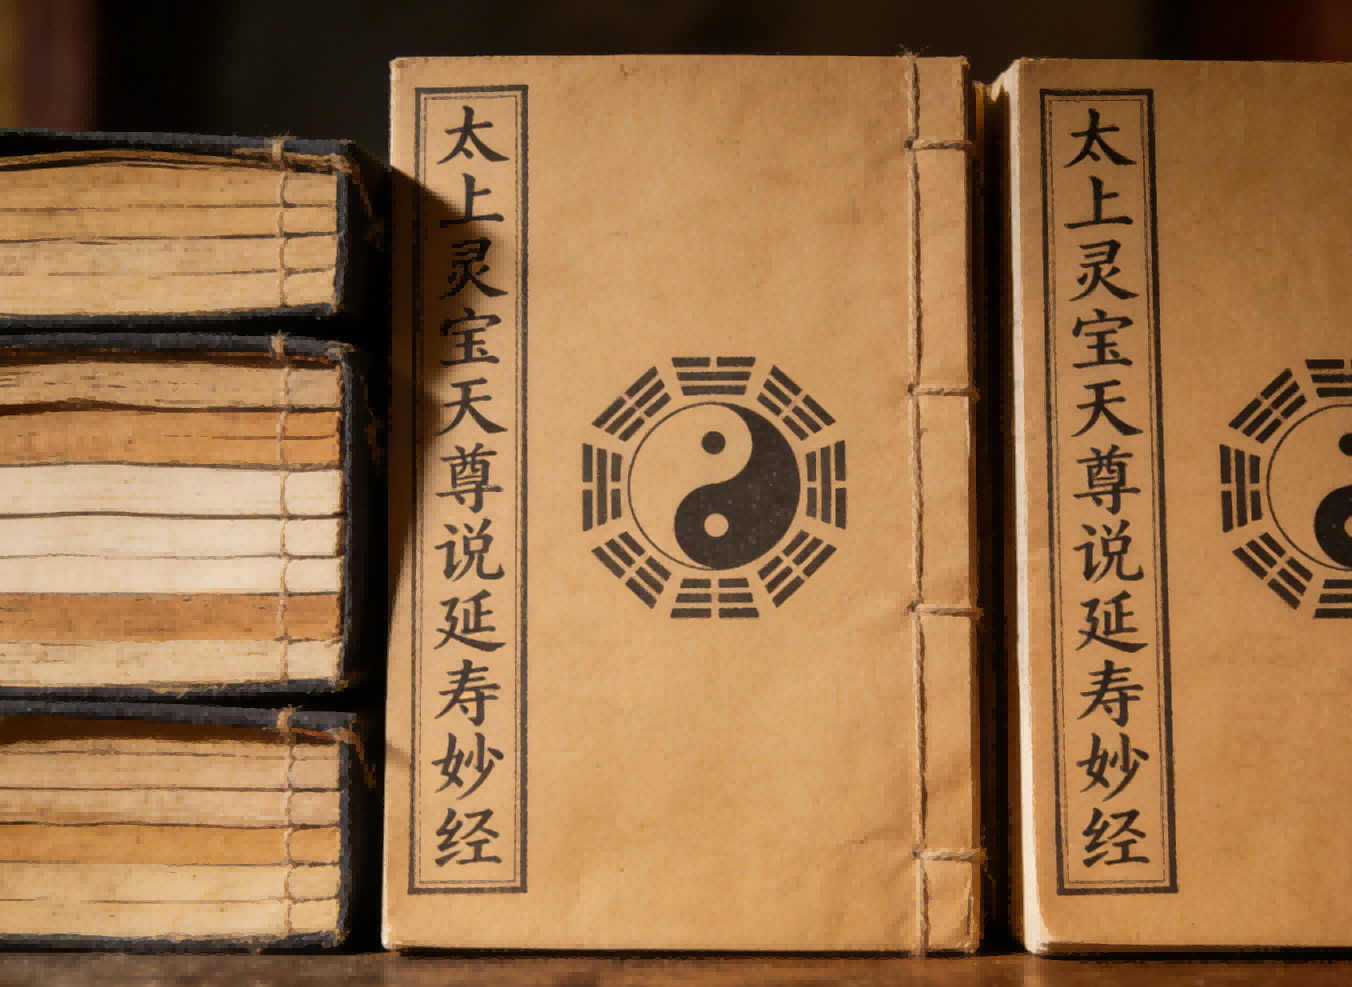 太上灵宝天尊说延寿妙经
太上灵宝天尊说延寿妙经